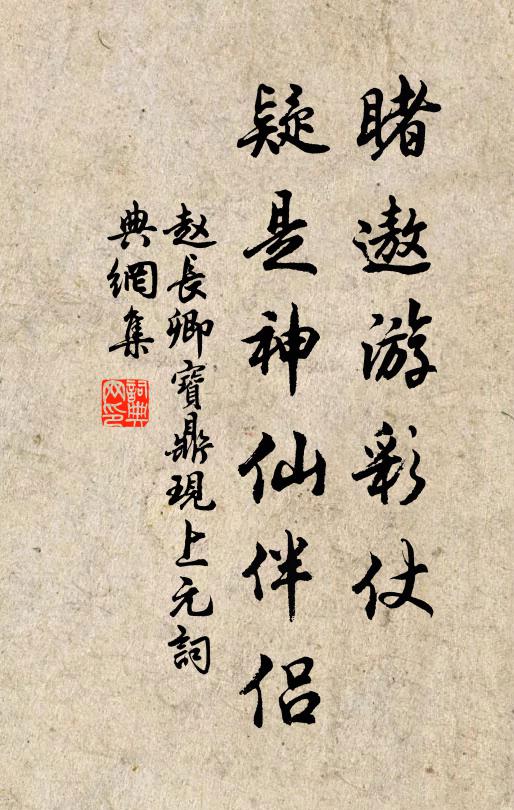 睹遨游彩仗
疑是神仙伴侣
赵長卿寶鼎現上元詞
典網集
詞典网印